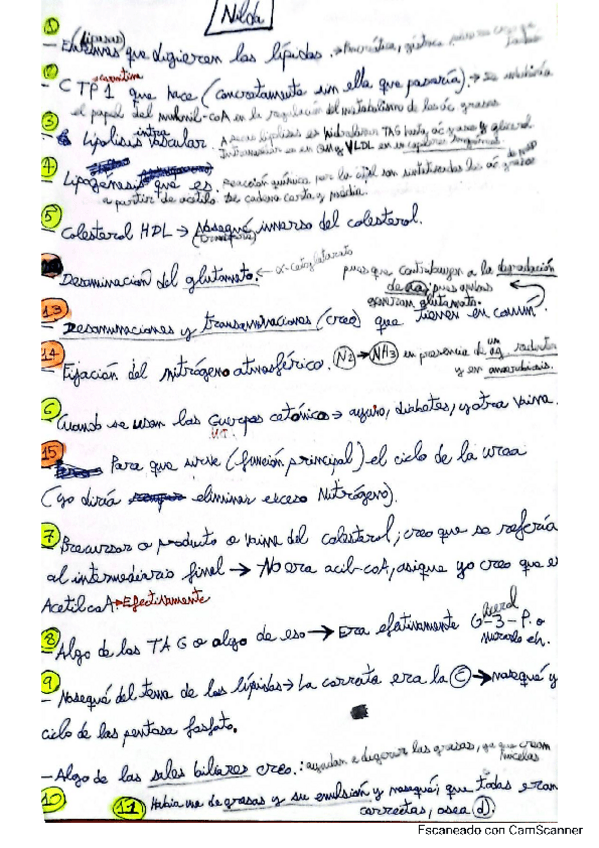 Nilda
1
(lipasas)
- Enzimas que digieren las lípidos. → Pancreática, gástrica,
2
carnitina
- CTP1 que hace (concretamente sin ella que pasaría). → Se
el papel del malonil-coA en la regulación del metabolismo de los ác. grasos
3
intra
Lipolisis vascular. hidrolizan TAG hasta ac grasos y glicerol
en QM y VLDL en los capilares sanguíneos.
4
Lipogénesis que es. Reacción química por la cual son sintetizados los ác grasos
a partir de acetilo de cadena corta y media.
5
- Colesterol HDL → Noseque inverso del colesterol.
(transporte)
- Desaminación del glutamato. ← α-cetoglutarato
pues que contribuyen a la degradación
de aa; pues ambos
generan glutamato.
13
- Desaminaciones y transaminaciones (creo) que tienen en común.
14
- Fijación del nitrógeno atmosférico. (N2) → (NH3) en presencia de un ag. reductor
y en anaerobiosis.
6
- Cuando se usan las cuerpos cetónicos → ayuno, diabetes, y otra vaina.
15
Para que sirve (función principal) el ciclo de la urea
(yo diría eliminar exceso Nitrógeno).
7
- Precursor o producto o vaina del colesterol; creo que se refería
al intermediario final → No era acil-coA, asique yo creo que e
AcetilcoA → Efectivamente
8
- Algo de los TAG o algo de eso → Era efectivamente G-3-P. o
9
- Noseque del tema de los lípidos → La correcta era la (C) → noseque y
ciclo de las pentosa fosfato.
- Algo de las sales biliares creo.: ayudan a digerir las grasas, ya que crean
micelas
10
11 Había una de grasas y su emulsión y noseque; que todas eran
correctas, osea (d).
Escaneado con CamScanner